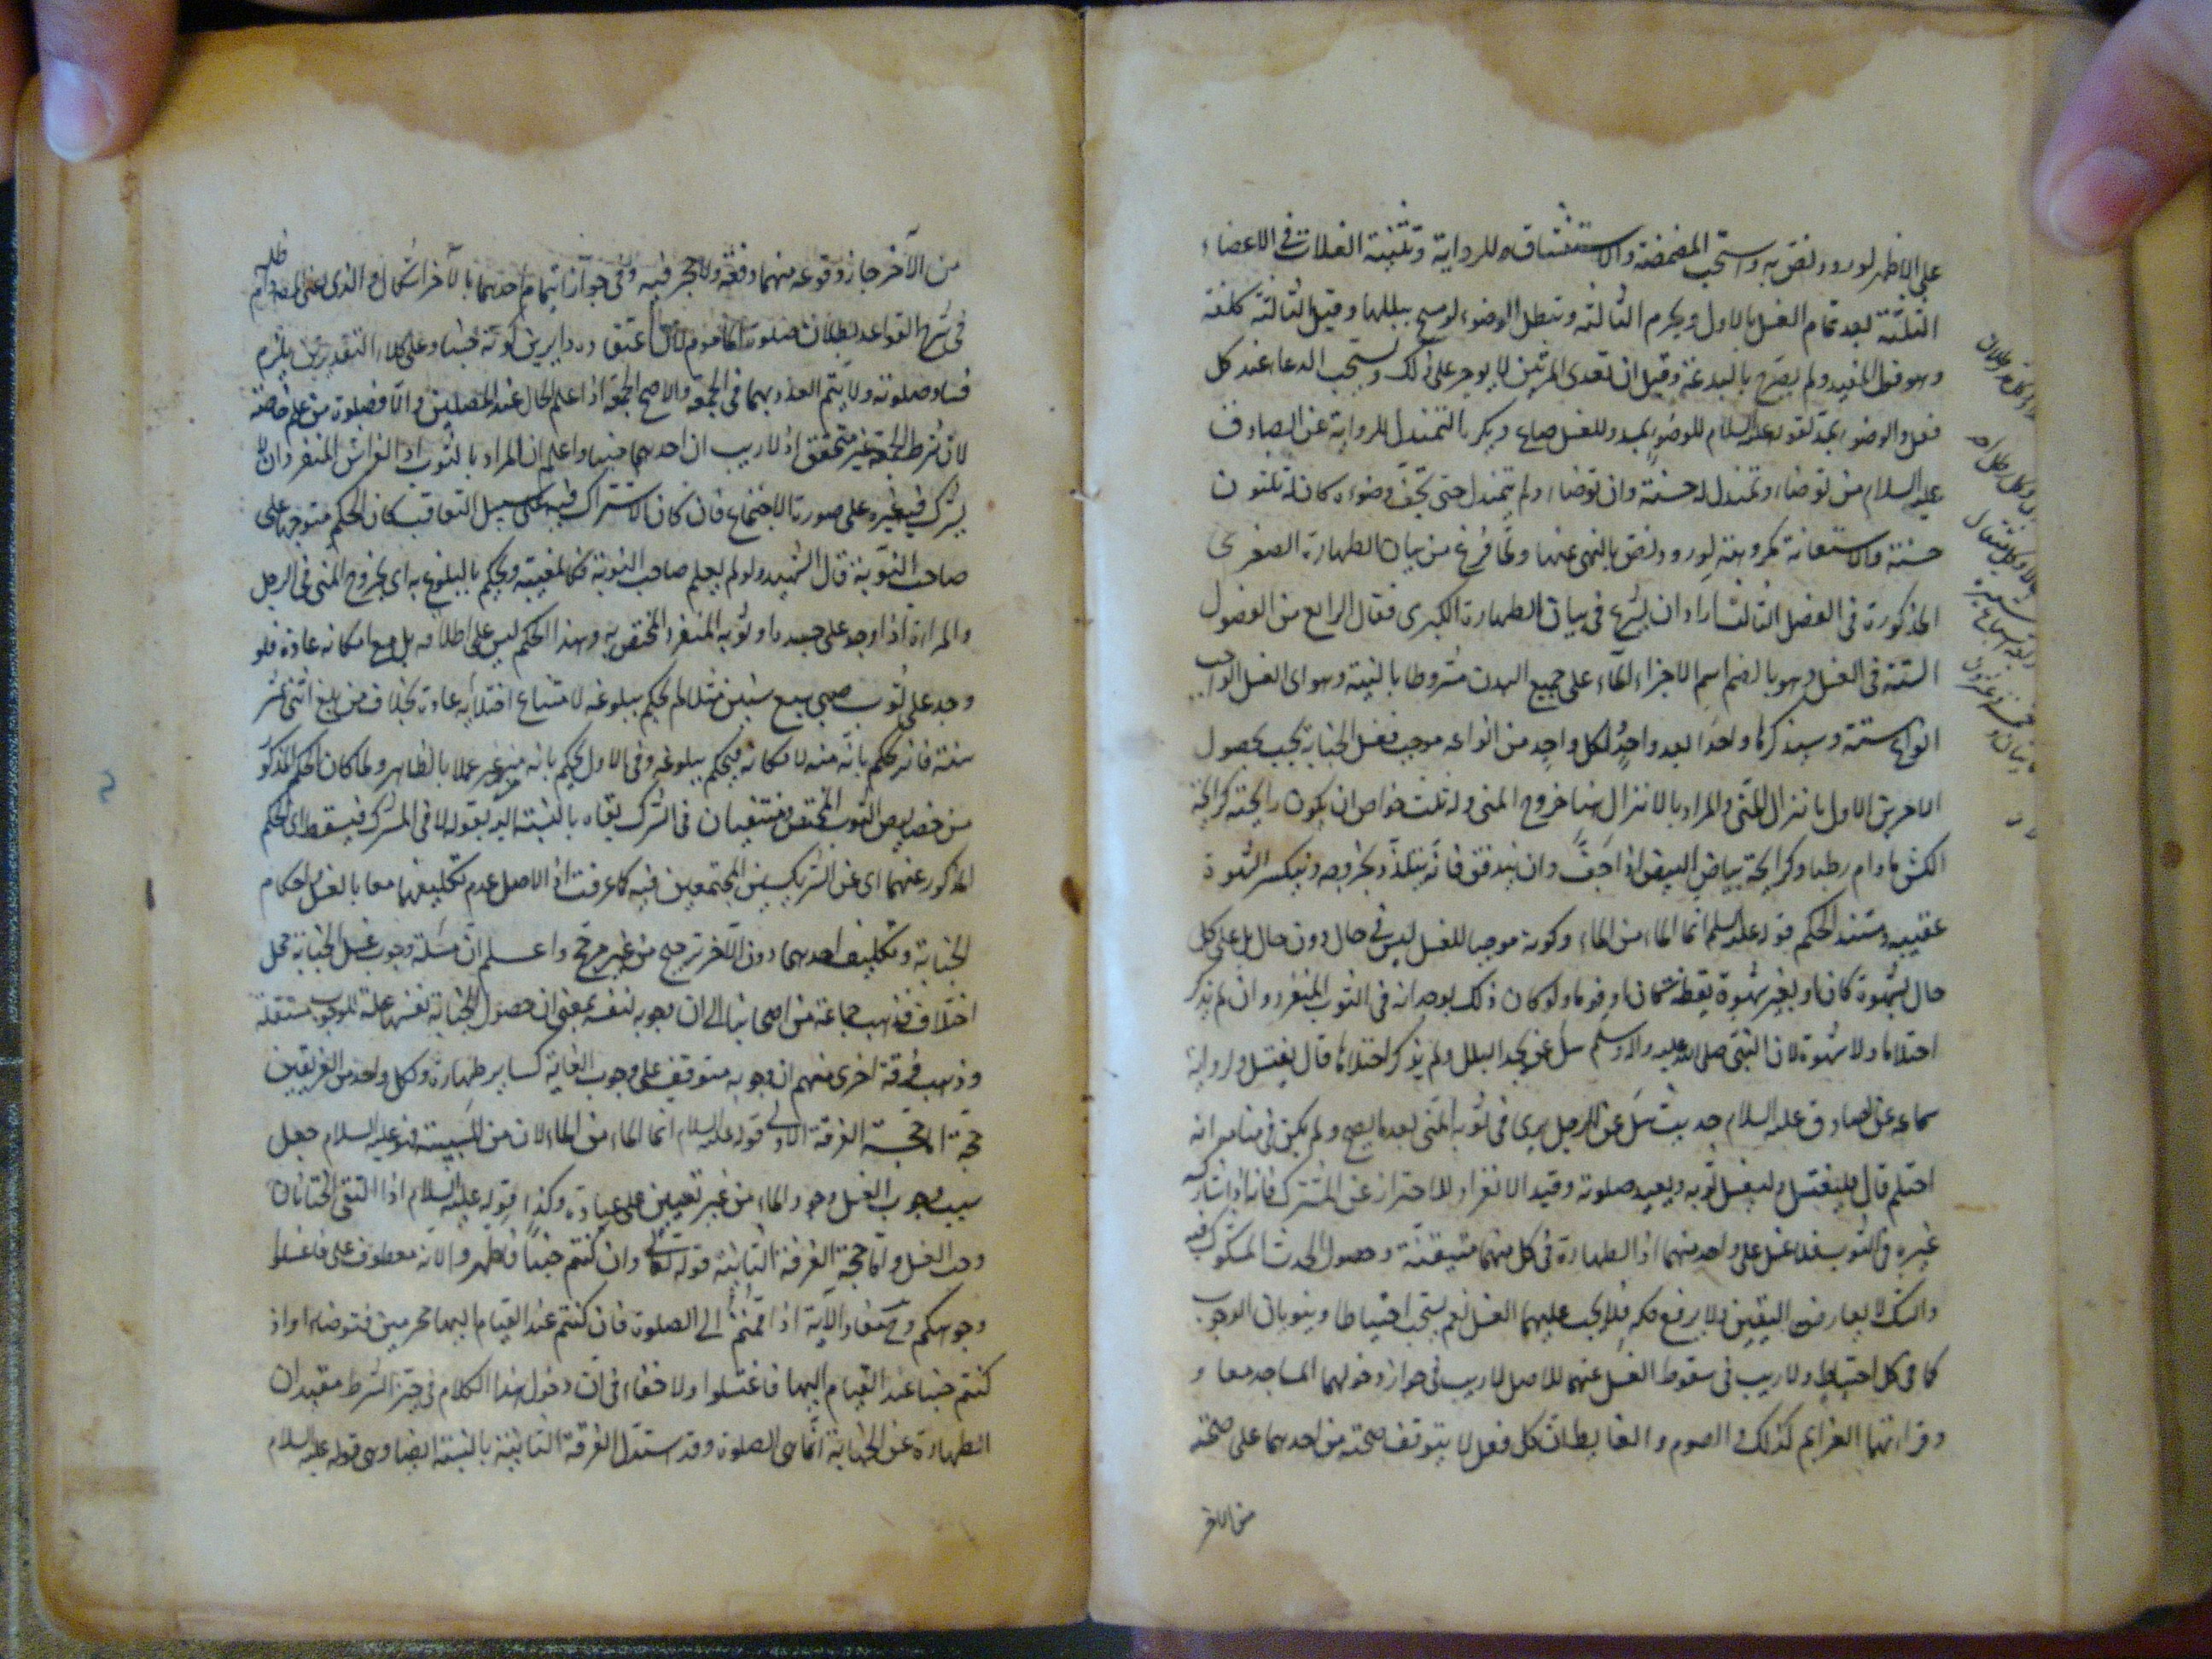 على الاظهر لورود نص به واستحب المضمضة والاستنشاق للرواية وتثنية الغسلات في الاعضاء
الثلثة بعد تمام الغسل بالاول ويحرم الثالثة وتبطل الوضوء لو مسح ببللها وقيل الثالثة كلفة
وهو قول المفيد ولم يصرح بالبدعة وقيل ان تعدى المرتين لا يوجر على ذلك ويستحب الدعا عند كل
فعل والوضوء بمد لقوله عليه السلام للوضوء بمد وللغسل صاع ويكره التمندل للرواية عن الصادق
عليه السلام من توضاء وتمندل له حسنة وان توضاء ولم يتمندل حتى يجف وضوءه كان له ثلثون
حسنة والاستعانة مكروهة لورود نص بالنهى عنها ولما فرغ من بيان الطهارة الصغرى
المذكورة في الفصل الثالث اراد ان يشرع في بيان الطهارة الكبرى فقال الرابع من الفصول
الستة في الغسل وهو بالضم اسم لاجراء الماء على جميع البدن مشروطا بالنية وهو اى الغسل الواجب
انواع ستة وسيذكرها واحدا بعد واحد لكل واحد من انواعه موجب فغسل الجنابة يجب بحصول
الامرين الاول بانزال المنى والمراد بالانزال هنا خروج المنى وله ثلث خواص ان يكون رايحته كرايحة
الكش مادام رطبا وكرايحة بياض البيض اذا جف وان يتدفق فانه يتلذذ بخروجه وينكسر الشهوة
عقيبه ومستند الحكم قوله عليه السلم انما الماء من الماء وكونه موجبا للغسل ليس في حال دون حال بل على كل
حال بشهوة كان او بغير شهوة يقظة كان او نوما ولو كان ذلك بوجدانه في الثوب المنفرد وان لم يذكر
احتلاما ولا شهوة لان النبى صلى الله عليه واله وسلم سئل عمن يجد البلل ولم يذكر احتلاما قال يغتسل ولرواية
سماعه عن الصادق عليه السلام حديث سئل عن الرجل يرى في ثوبه المنى بعد ما يصبح ولم يكن في منامه انه
احتلم قال فليغتسل وليغسل ثوبه ويعيد صلوته وقيد الانفراد للاحتراز عن المشترك فانه اذا شاركه
غيره في الثوب فلا غسل على واحد منهما اذ الطهارة في كل منهما متيقنة وحصول الحدث المشكوك فيه
والشك لا يعارض اليقين ولا يرفع حكمه فلا يجب عليهما الغسل نعم يستحب احتياطا وينويان الوجوب
كما في كل احتياط ولا ريب في سقوط الغسل عنهما للاصل لا ريب في جواز دخولهما المساجد معا و
وقراءتهما العزايم كذلك والصوم والضابط ان كل فعل لا يتوقف صحته من احدهما على صحته
من الاخر
من الآخر جاز وقوعه منهما دفعة ولا حجر فيه وفي جواز ايتمام احدهما بالآخر اشكال والذى
في شرح القواعد بطلان صلوة الماموم وعلى كلا التقديرين يلزم
فساد صلوته ولا يتم العدد بهما في الجمعة والاصح الجمعة اذا علم الحال عند المصلين والا فصلوة من علم خاصة
لان شرط الجمعة غير متحقق اذ لا ريب ان احدهما جنب واعلم ان المراد بالثوب او الفراش المنفرد ان لا
يشرك فيه غيره على صورة الاجتماع فان كان الاشتراك فيه على سبيل التعاقب كان الحكم متوجها على
صاحب النوبة قال الشهيد ولو لم يعلم صاحب النوبة فكالمعية ويحكم بالبلوغ به اى بخروج المنى في الرجل
والمراة اذا وجد على جسده او ثوبه المنفرد المختص به وهذا الحكم ليس على اطلاقه بل مع امكانه عادة فلو
وجد على ثوب صبى سبع سنين مثلا لم يحكم ببلوغه لامتناع اختلائه عادة بخلاف من بلغ اثنى عشر
سنة فانه يحكم بانه منه لامكانه فيحكم ببلوغه وفي الاول يحكم بانه من غيره عملا بالظاهر ولما كان الحكم المذكور
من خصايص الثوب المختص فينتفيان في المشترك بقاء بالنسبة اليه بقوله لا في المشترك فيسقط اى الحكم
المذكور عنهما اى عن الشريكين المجتمعين فيه كما عرفت اذ الاصل عدم تكليفهما معا بالغسل واحكام
الجنابة وتكليف احدهما دون الآخر ترجيح من غير مرجح واعلم ان مسئلة وجوب غسل الجنابة محل
اختلاف فذهب جماعة من اصحابنا الى ان وجوبه لنفسه بمعنى ان حصول الجنابة نفسها علة للوجوب مستقلة
وذهب فرقة اخرى منهم ان وجوبه متوقف على وجوب الغاية كساير طهارة ولكل واحد من الفريقين
حجة اما حجة الفرقة الاولى قوله عليه السلام انما الماء من الماء لان من للسببية فهو عليه السلام جعل
سبب وجوب الغسل وجود الماء من غير تعيين على عبادة وكذا قوله عليه السلام اذا التقى الختانان
وجب الغسل واما حجة الفرقة الثانية قوله تعالى وان كنتم جنبا فاطهروا لانه معطوف على فاغسلوا
وجوهكم ومستفاد الآية اذا قمتم الى الصلوة فان كنتم عند القيام اليها محرمين فتوضاوا واذ
كنتم جنبا عند القيام اليها فاغتسلوا ولا خفاء في ان دخول هذا الكلام في حيز الشرط مقيد ان
الطهارة عن الجنابة انما هى للصلوة وقد استدل الفرقة الثانية بالسنة ايضا وهى قوله عليه السلام